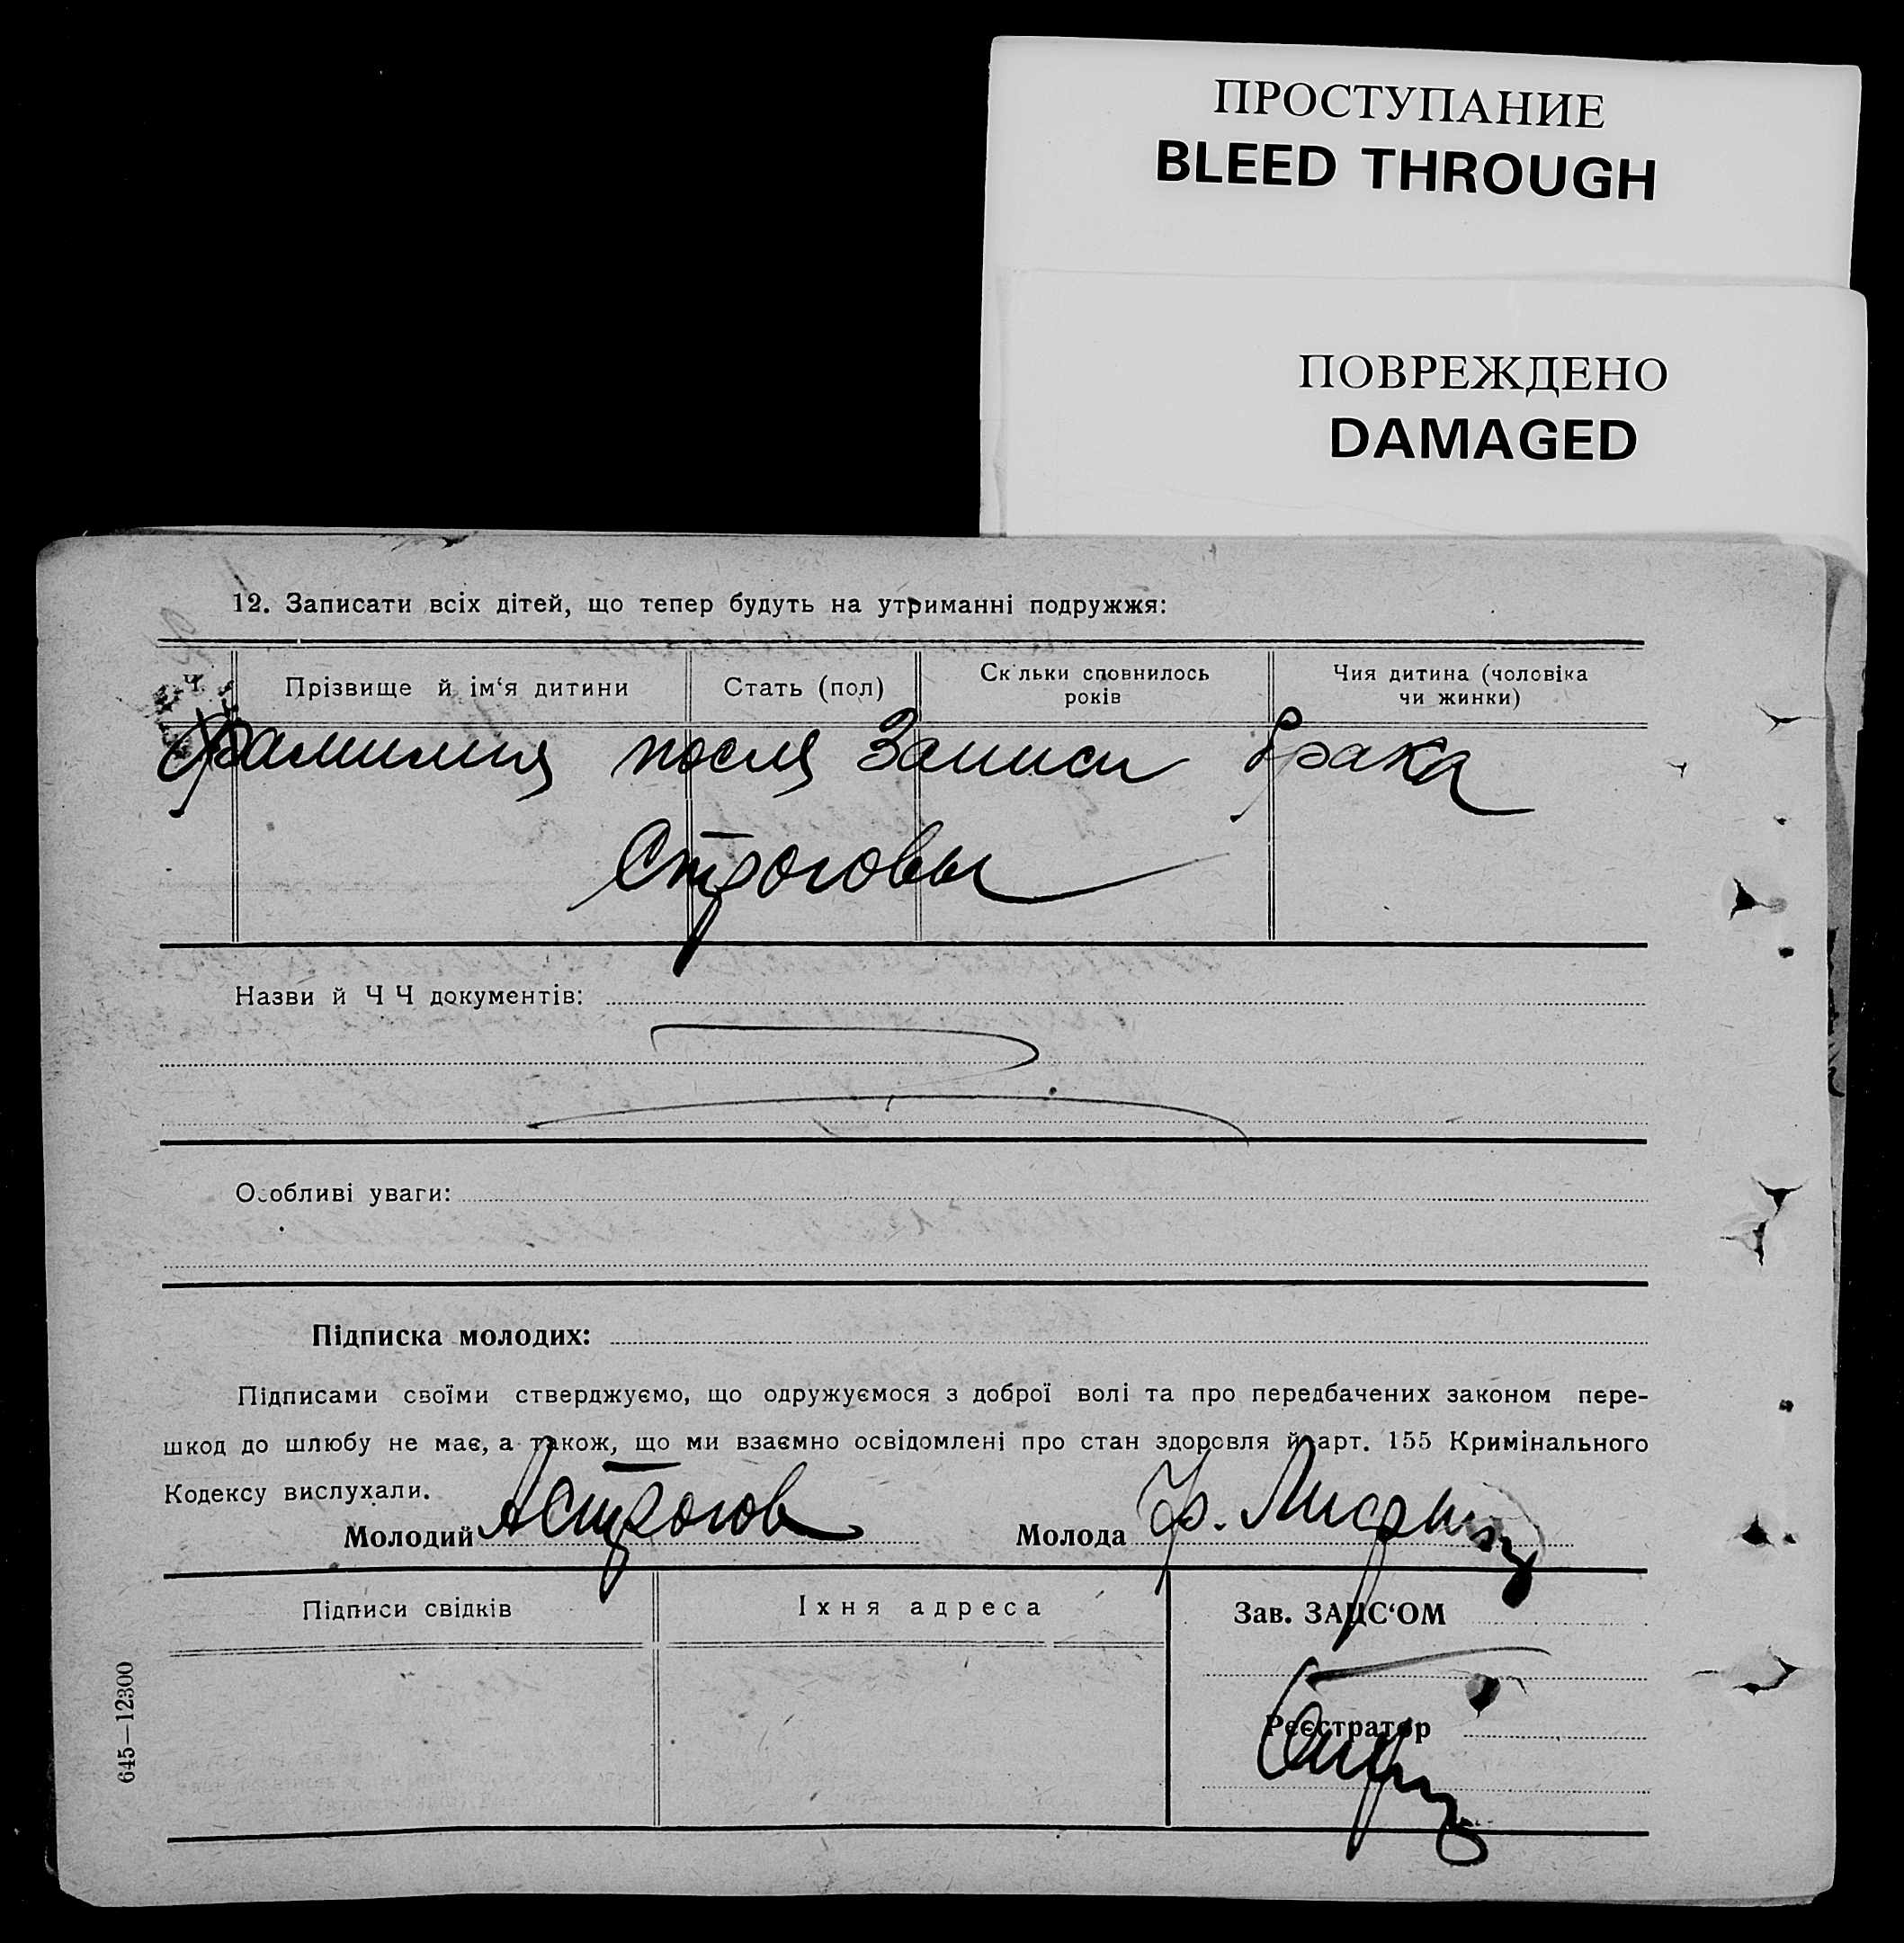 ПРОСТУПАНИЕ
BLEED THROUGH
ПОВРЕЖДЕНО
DAMAGED
12. Записати всіх дітей, що тепер будуть на утриманні подружжя:
Ч.
Прізвище й ім‘я дитини
Стать (пол)
Ск льки сповнилось
років
Чия дитина (чоловіка
чи жинки)
Фамилия после записи брака
Строговы
Назви й Ч Ч документів:
Особливі уваги:
Підписка молодих:
Підписами своїми стверджуємо, що одружуємося з доброї волі та про передбачених законом пере-
шкод до шлюбу не має, а також, що ми взаємно освідомлені про стан здоровля й арт. 155 Кримінального
Кодексу вислухали.
Молодий АСтрогов Молода
Підписи свідків
Їхня адреса
Зав. ЗАЦС‘ОМ
Реєстратор
645—12300